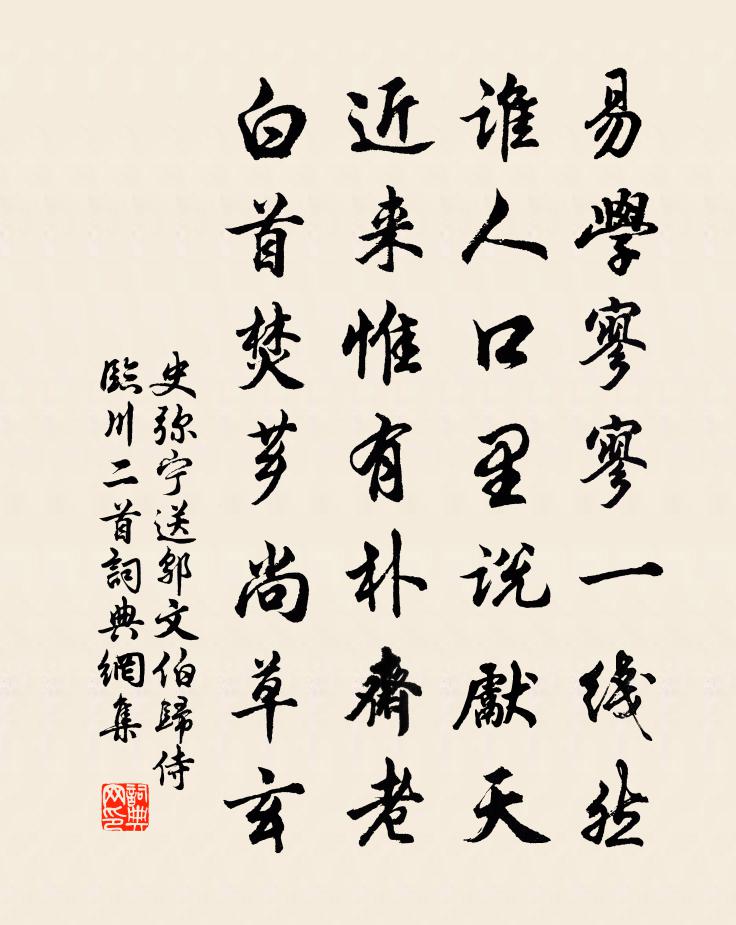 易學寥寥一线然
誰人口里説獻天
近来惟有朴齋老
白首焚芗尚草玄
史弥宁送鄔文伯歸侍
臨川二首詞典網集
詞典
网印